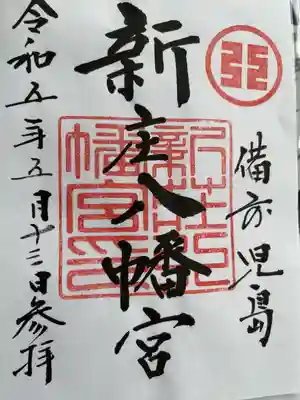 備前児島
新庄八幡宮
令和五年五月十三日参拝